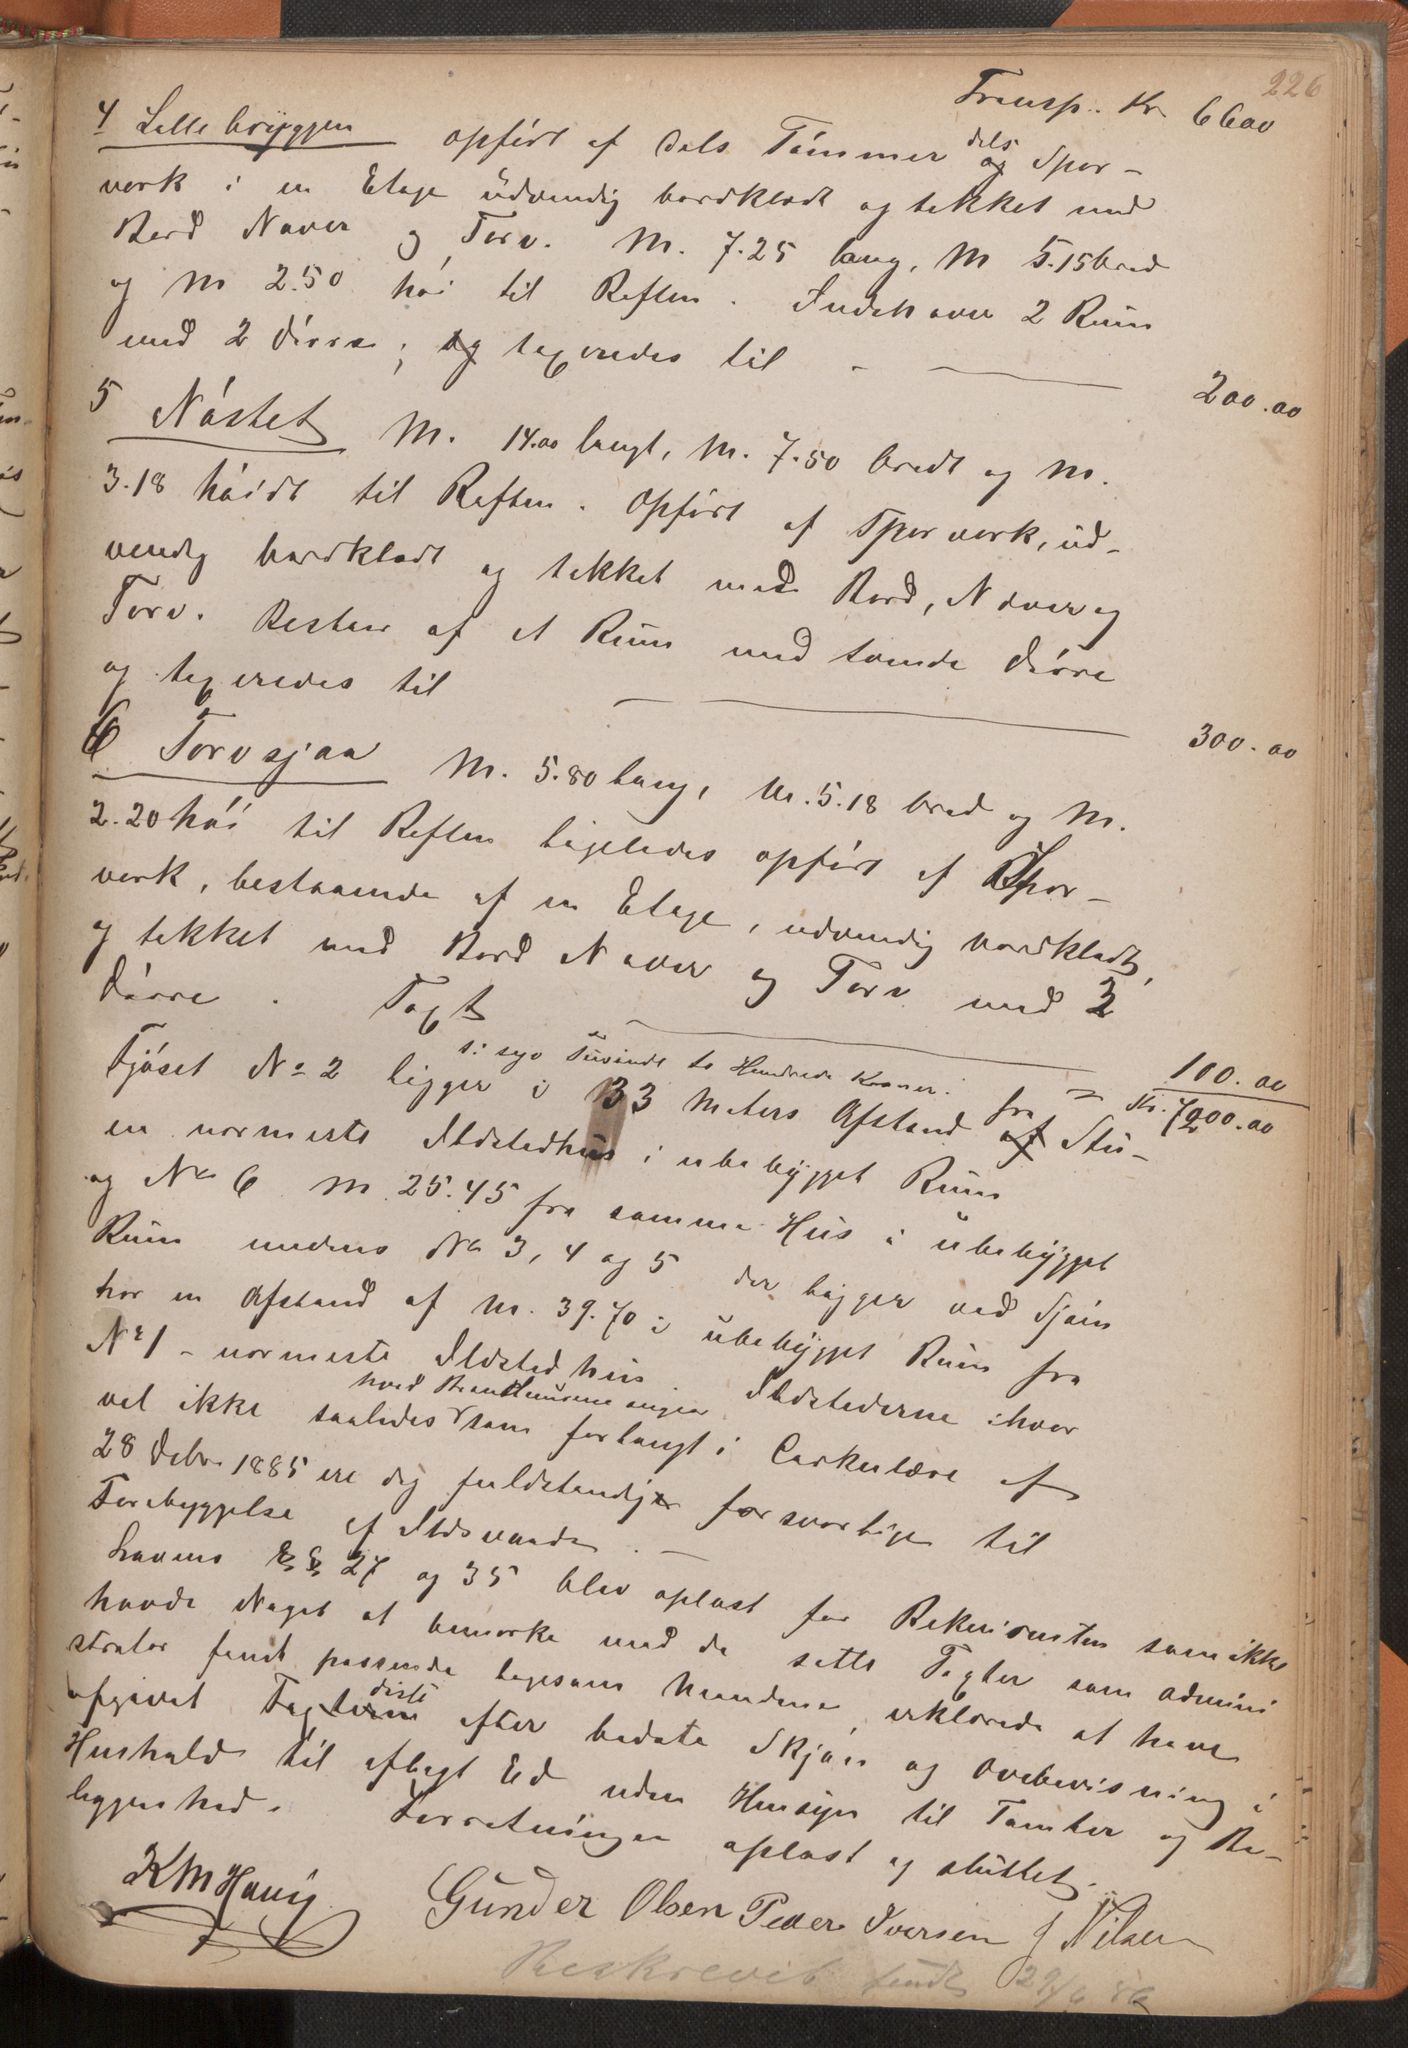 226
Transp. Kr 6600
4 Lillebryggen opført af dels Tømmer dels og Spor-
verk i en Etage udvendig bordklædt og tækket med
Bord Næver og Torv. M. 7.25 lang, M 5.15 bred
og M 2.50 høi til Raften. Indehaver 2 Rum
med 2 Dørre; og taxeredes til - 200.00
5 Nøstet M. 14.00 langt, M. 7.50 bredt og M.
3.18 høidt til Raften. Opført af Sporverk, ud-
vendig bordklædt og tækket med Bord, Næver og
Torv. Bestaar af et Rum med tvende Dørre
og taxeredes til 300.00
6 Torvsjaa M. 5.80 lang, M. 5.18 bred og M.
2.20 høi til Raften ligeledes opført af Spor-
verk, bestaaende af en Etage, udvendig bordklædt,
og tækket med Bord Næver og Torv med 2
Dørre. Taxt 100.00
si syv Tusinde to Hundrede Kroner. = Kr. 7200.00
Fjøset No 2 ligger i 33 Meters Afstand fra af Stu-
en nærmeste Ildstedhus i ubebygget Rum
og No 6 M. 25.45 fra samme Hus i ubebygget
Rum medens No 3, 4 og 5 der ligger ved Sjøen
har en Afstand af M. 39.70 i ubebygget Rum fra
No 1 - nærmeste Ildstedhus. Ildstederne ihvor
vel ikke saaledes hvad Brandmurene angaar som forlangt i Cirkulære af
28 Debr 1885 ere dog fuldstændiger forsvarlige til
Forebyggelse af Ildsvaade. -
Lovens §§ 27 og 35 blev oplæst for Rekvirenten som ikke
havde Noget at bemærke med de satte Taxter som admini
strator fandt passende ligesom Mændene erklærede at have
afgivet Taxterne disse efter bedste Skjøn og Overbevisning i
Henhold til aflagt Ed uden Hensyn til Tomter og Be-
liggenhed. Forretningen oplæst og sluttet.
KM Havig Gunder Olsen Peder Iversen J Nilsen
Beskrevet sendt 29/6 86